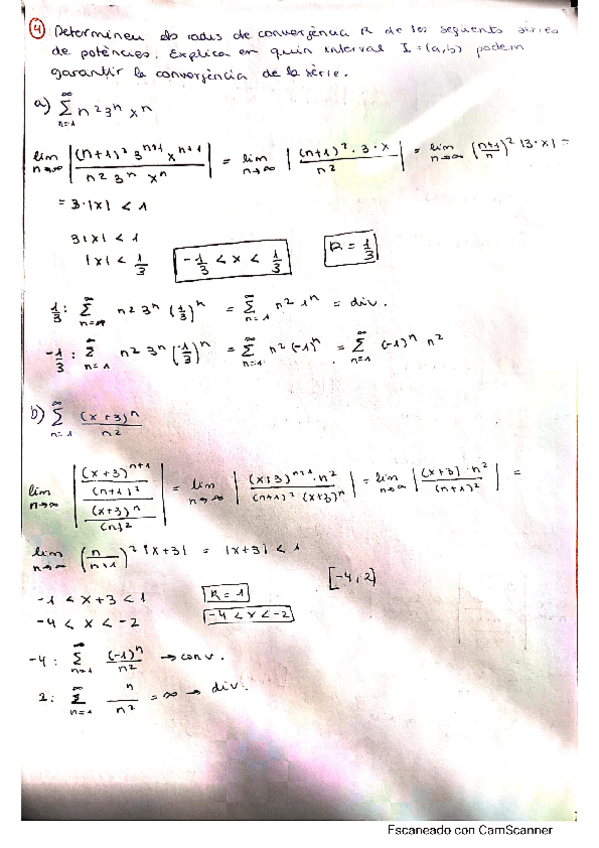 ④ Determineu els radis de convergència R de les següents sèries
de potències. Explica en quin interval I = (a,b) podem
garantir la convergència de la sèrie.
a) ∞∑n=1 n² 3ⁿ xⁿ
lim n→∞ |(n+1)² 3ⁿ⁺¹ xⁿ⁺¹ / n² 3ⁿ xⁿ| = lim n→∞ |(n+1)² · 3 · x / n²| = lim n→∞ (n+1/n)² |3·x| =
= 3·|x| < 1
3|x| < 1
|x| < 1/3 -1/3 < x < 1/3 R = 1/3
1/3 : ∞∑n=1 n² 3ⁿ (1/3)ⁿ = ∞∑n=1 n² 1ⁿ = div.
-1/3 : ∞∑n=1 n² 3ⁿ (-1/3)ⁿ = ∞∑n=1 n² (-1)ⁿ = ∞∑n=1 (-1)ⁿ n²
b) ∞∑n=1 (x+3)ⁿ / n²
lim n→∞ |(x+3)ⁿ⁺¹ / (n+1)² / (x+3)ⁿ / (n)²| = lim n→∞ |(x+3)ⁿ⁺¹ · n² / (n+1)² (x+3)ⁿ| = lim n→∞ |(x+3) · n² / (n+1)²| =
lim n→∞ (n / n+1)² |x+3| = |x+3| < 1
[-4, 2)
-1 < x+3 < 1 R = 1
-4 < x < -2 -4 < x < -2
-4 : ∞∑n=1 (-1)ⁿ / n² → conv.
2 : ∞∑n=1 n / n² = ∞ → div.
Escaneado con CamScanner